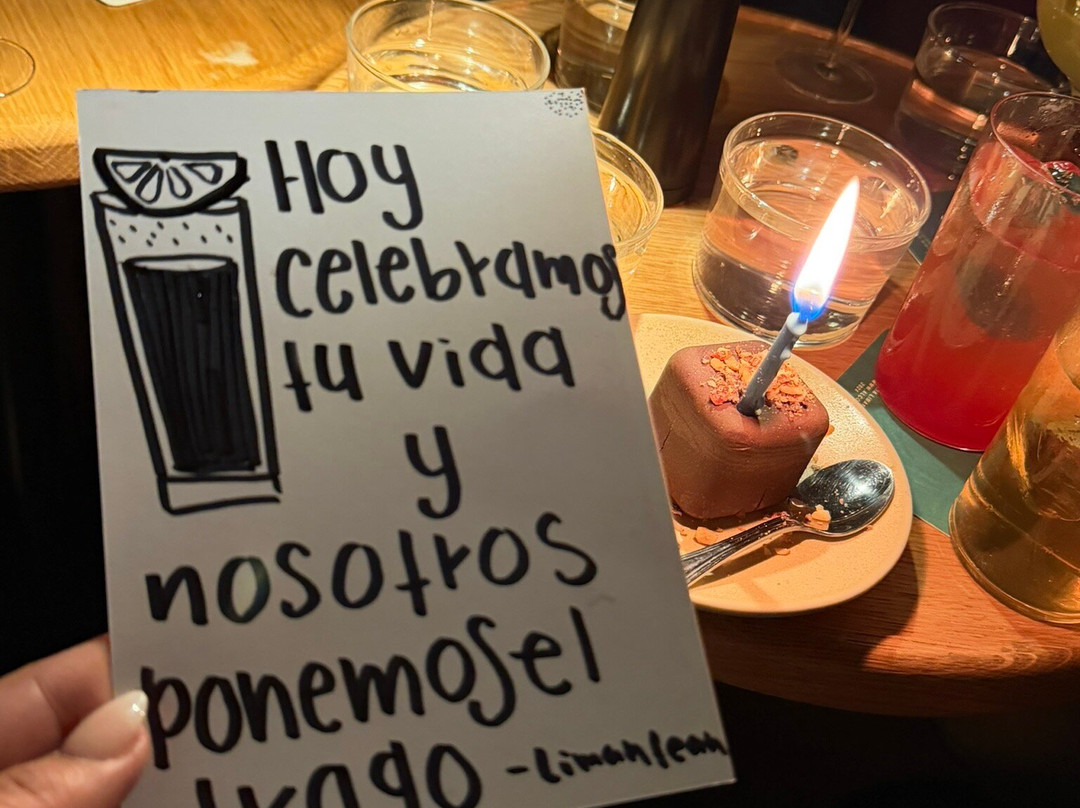 Hoy
celebramos
tu vida
y
nosotros
ponemos el
trago